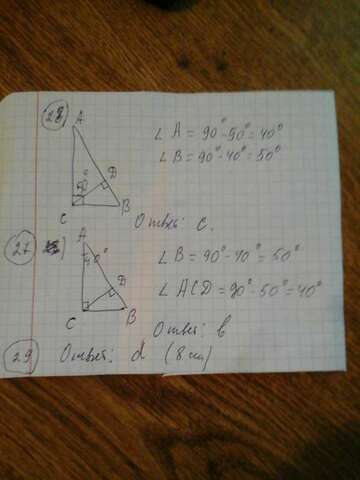 28)
A
∠A = 90°-50°=40°
∠B = 90°-40°=50°
50°
D
C
B
Ответ: c.
27
A
40°
∠B = 90°-40°=50°
∠ACD = 90°-50°=40°
D
C
B
Ответ: b
29
Ответ: d (8 см)